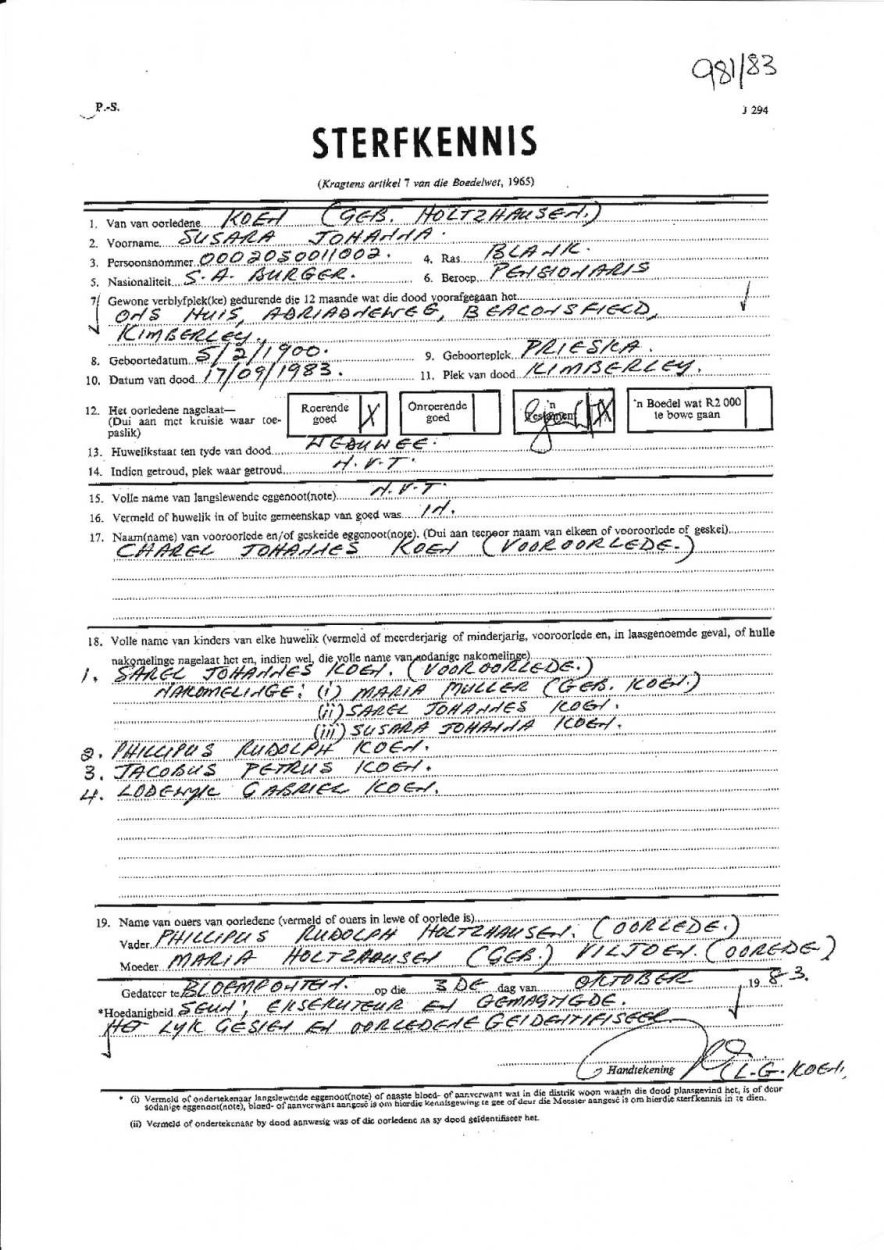 981/83
P.-S.
J 294
STERFKENNIS
(Kragtens artikel 7 van die Boedelwet, 1965)
1. Van van oorledene KOEN (GEB. HOLTZHAUSEN.)
2. Voorname SUSARA JOHANNA.
3. Persoonsnommer 0002050011002. 4. Ras BLANK.
5. Nasionaliteit S.A. BURGER. 6. Beroep PENSIONARIS
7. Gewone verblyfplek(ke) gedurende die 12 maande wat die dood voorafgegaan het
ONS HUIS, ADRIADNEWEG, BEACONSFIELD,
KIMBERLEY.
8. Geboortedatum 5/2/1900. 9. Geboorteplek PRIESKA.
10. Datum van dood 17/09/1983. 11. Plek van dood KIMBERLEY.
12. Het oorledene nagelaat— Roerende goed X Onroerende goed 'n Testament X 'n Boedel wat R2 000 te bowe gaan
(Dui aan met kruisie waar toe-
paslik)
13. Huwelikstaat ten tyde van dood WEDUWEE.
14. Indien getroud, plek waar getroud N.V.T.
15. Volle name van langslewende eggenoot(note) N.V.T.
16. Vermeld of huwelik in of buite gemeenskap van goed was IN.
17. Naam(name) van vooroorlede en/of geskeide eggenoot(note). (Dui aan teenoor naam van elkeen of vooroorlede of geskei)
CHAREL JOHANNES KOEN (VOOROORLEDE.)
18. Volle name van kinders van elke huwelik (vermeld of meerderjarig of minderjarig, vooroorlede en, in laasgenoemde geval, of hulle
nakomelinge nagelaat het en, indien wel, die volle name van sodanige nakomelinge)
1. SAREL JOHANNES KOEN. (VOOROORLEDE.)
NAKOMELINGE: (i) MARIA MULLER (GEB. KOEN.)
(ii) SAREL JOHANNES KOEN.
(iii) SUSARA JOHANNA KOEN.
2. PHILLIPUS RUDOLPH KOEN.
3. JACOBUS PETRUS KOEN.
4. LODEWYK GABRIEL KOEN.
19. Name van ouers van oorledene (vermeld of ouers in lewe of oorlede is)
Vader PHILLIPUS RUDOLPH HOLTZHAUSEN. (OORLEDE.)
Moeder MARIA HOLTZHAUSEN (GEB.) VILJOEN. (OOREDE)
Gedateer te BLOEMFONTEIN. op die 3 DE dag van OKTOBER 19 83.
*Hoedanigheid SEUN; EKSEKUTEUR EN GEMAGTIGDE.
HET LYK GESIEN EN OORLEDENE GEIDENTIFISEER
Handtekening (L.G. KOEN.
* (i) Vermeld of ondertekenaar langslewende eggenoot(note) of naaste bloed- of aanverwant wat in die distrik woon waarin die dood plaasgevind het, is of deur
sodanige eggenoot(note), bloed- of aanverwant aangesê is om hierdie kennisgewing te gee of deur die Meester aangesê is om hierdie sterfkennis in te dien.
(ii) Vermeld of ondertekenaar by dood aanwesig was of die oorledene na sy dood geïdentifiseer het.